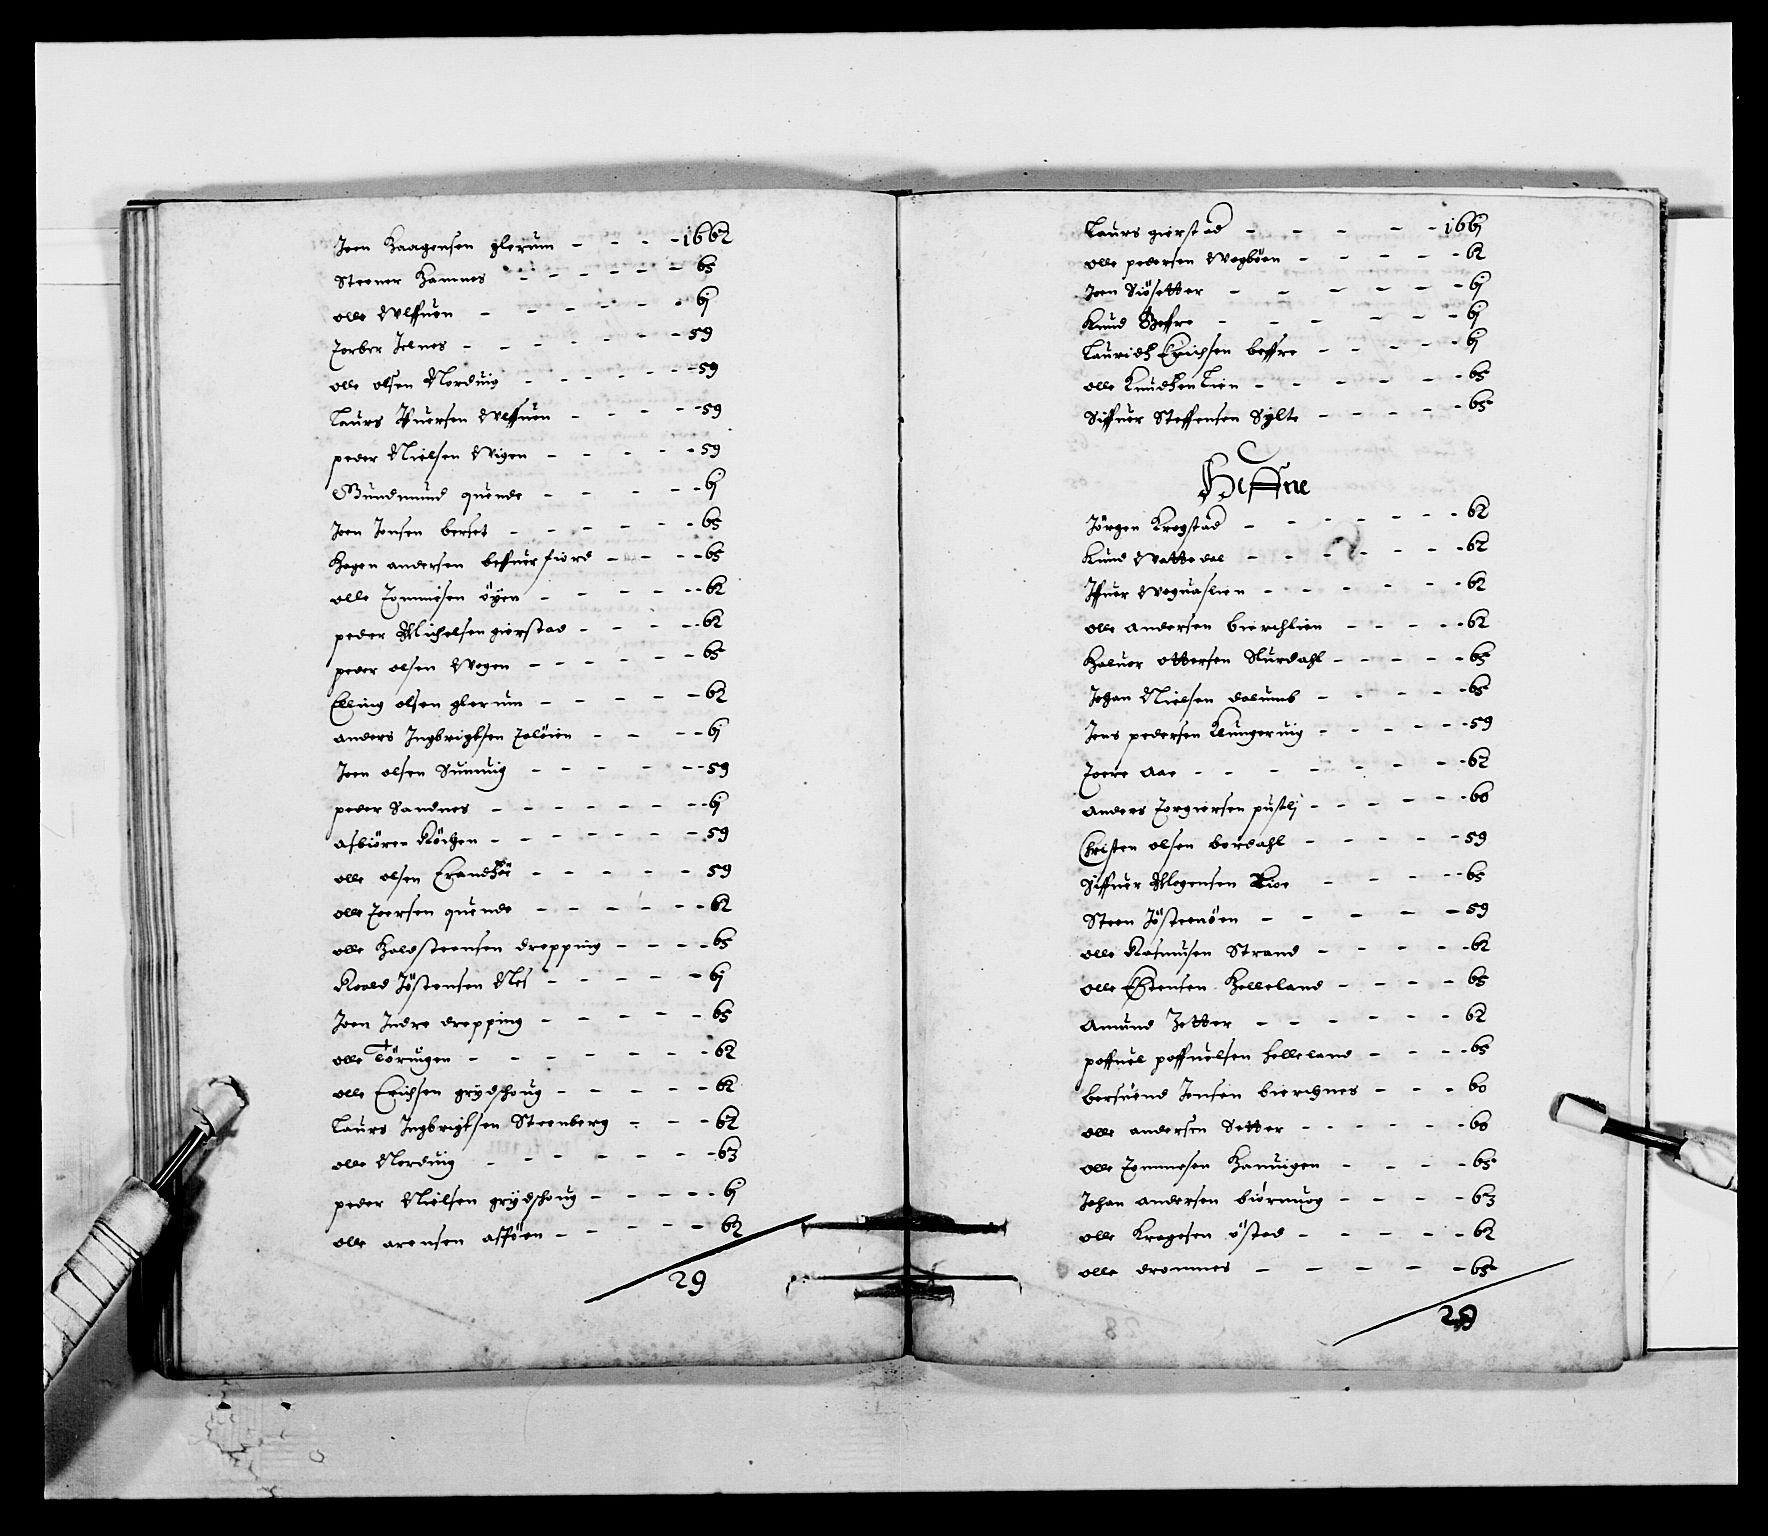 Joen Haagensen glerum - - - - 1662
Steener Hamnes - - - - - - 65
olle Ulffuen - - - - - - 6j
Torber Jelnes - - - - - - - 59
olle olsen Norduig - - - - - - 59
Laurs Ifuersen Ulffuen - - - - - 59
peder Nielsen Wigen - - - - - 59
Gundmund quende - - - - - 6j
Joen Jonsen berset - - - - - - 65
Hagen andersen beffuerfiord - - - - 65
olle Tommesen öyen - - - - - - 62
peder Michelsen gierstad - - - - - 62
peder olsen Wogen - - - - - - 65
Elling olsen glerum - - - - - 62
anders Ingbrigtsen Taløien - - - - 6j
Joen olsen Sunuig - - - - - - 59
peder Sandnes - - - - - - - 6j
asbiören - - - - - - 59
olle olsen - - - - - 59
olle Toersen quende - - - - - - 62
olle Haldsteensen dropping - - - - 65
Roald Jöstensen Nes - - - - - 6j
Joen Indre dropping - - - - - 65
olle Töruigen - - - - - - - 62
olle Erichsen grÿdschoug - - - - - 62
Laurs Ingbrigtsen Steenberg - - - 62
olle Norduig - - - - - - - 63
peder Nielsen grÿdschoug - - - - - 6j
olle arensen asföen - - - - - 62
29
Laurs gierstad - - - - - 166j
olle pedersen Wogböen - - - - - 62
Joen Siösetter - - - - - - 6j
Knud Beffre - - - - - - 6j
Lauridtz Erichsen beffre - - - - - 6j
olle Knudtzen Lien - - - - - - 65
Siffuer Steffensen Sylte - - - - - 65
Heffne
Jörgen Krogstad - - - - - - - 62
Knud Wattedal - - - - - - - 62
Ifuer Woguaslien - - - - - - 62
olle andersen bierchlien - - - - - 62
Haluor ottersen Skurdahl - - - - - 65
Johan Nielsen dalumb - - - - - 65
Jens pedersen Klungeruig - - - - - 59
Toere Aae - - - - - - - 62
anders Torgiersen puslj - - - - - 60
Christen olsen bordahl - - - - - 59
Siffuer Mogensen - - - - 65
Steen Jösteenöen - - - - - 59
olle Rasmusen Strand - - - - - 62
olle Estensen Helleland - - - - 65
Amund Zetter - - - - - - 62
poffuel poffuelsen Helleland - - - - 65
bersuend Jensen bierchnes - - - 60
olle andersen Setter - - - - - 60
olle Tommesen Hamuigen - - - - 65
Johan andersen biörnuog - - - - 63
olle Kragesen östad - - - - - 62
olle drommes - - - - - 65
29